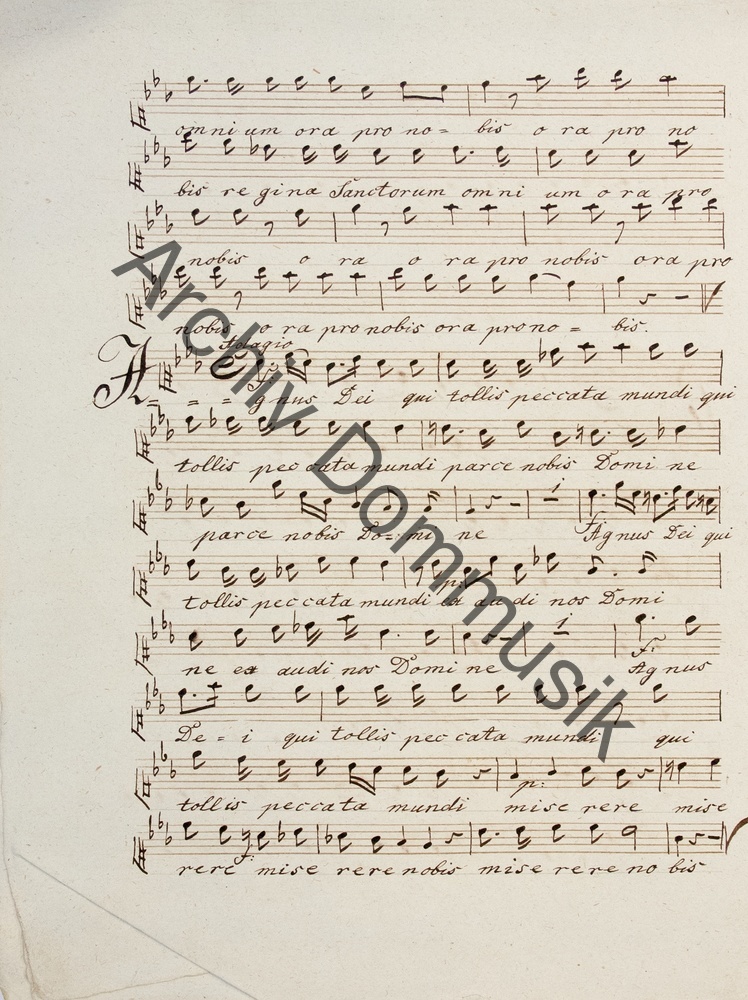 omni um ora pro no= bis o ra pro no
bis re gina Sanctorum omni um o ra pro
nobis o ra o ra pro nobis ora pro
nobis o ra pro nobis ora pro no = bis.
Adagio
F:
A = = = gnus Dei qui tollis peccata mundi qui
tollis pec cata mundi parce nobis Domi ne
parce nobis Do=: mi ne Agnus Dei qui
F:
tollis pec cata mundi ex au di nos Domi
p:
ne ex audi nos Domi ne Agnus
F:
De = i qui tollis pec cata mundi qui
tollis peccata mundi mise rere mise
p:
rere mise rere nobis mise rere no bis
F:
Archiv Dommusik